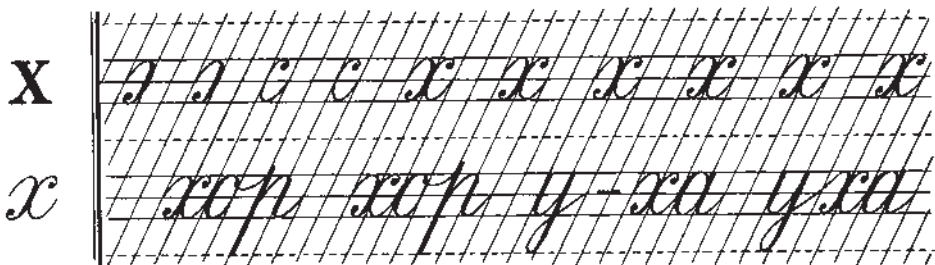 х ɔ ɔ с с х х х х х х
х хор хор у-ха уха